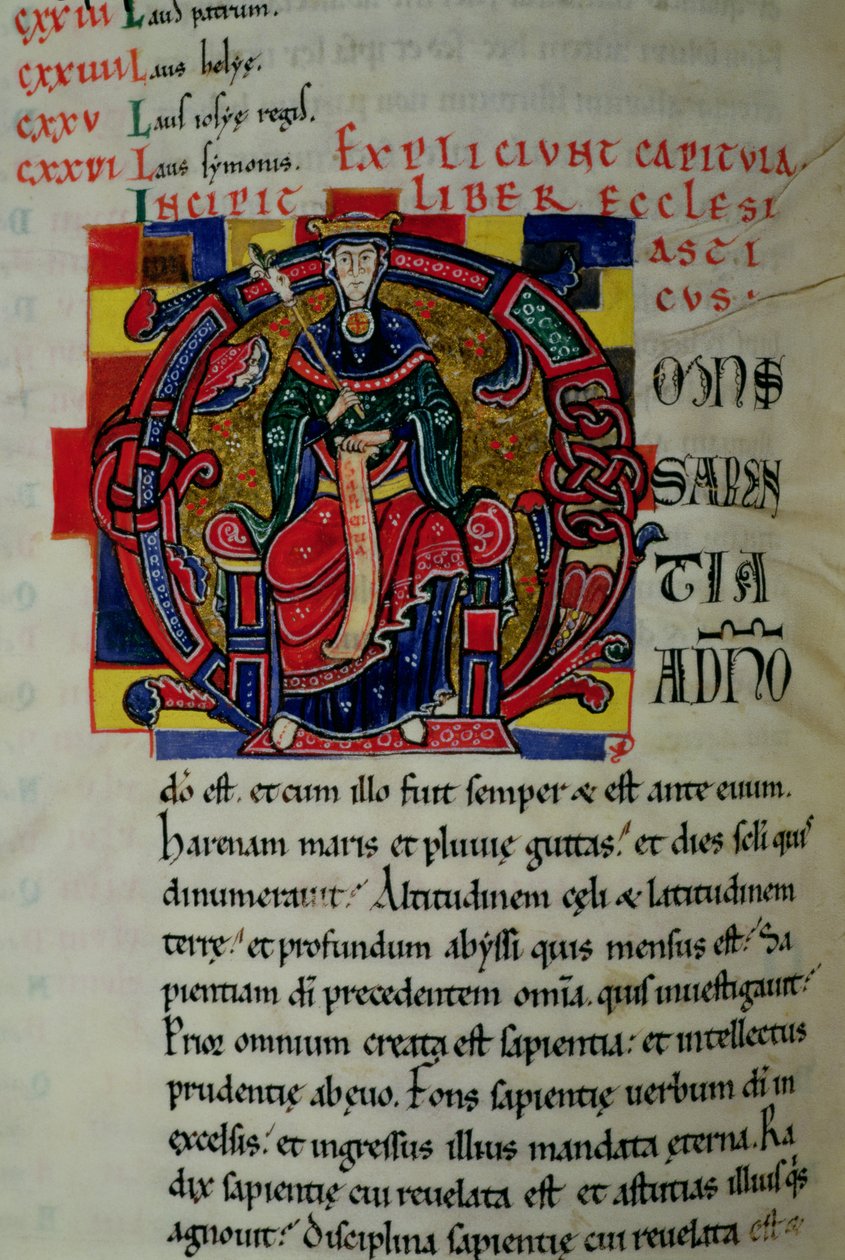 CXXIII Laud patrum.
CXXIIII Laus helyę.
CXXV Laus iosyę regis.
CXXVI Laus symonis. EXPLICIUNT CAPITULA.
INCIPIT LIBER ECCLESI
ASTI
CUS.
OMNS
SAPIEN
TIA
ADÑO
SAPIENTIA
dō est. et cum illo fuit semper & est ante euum.
Harenam maris et pluuię guttas. et dies scłi quis
dinumerauit? Altitudinem cęli & latitudinem
terrę. et profundum abyssi quis mensus est? Sa
pientiam dī precedentem om̄ia. quis inuestigauit?
Prior omnium creata est sapientia. et intellectus
prudentię ab ęuo. Fons sapientię uerbum dī in
excelsis. et ingressus illius mandata ęterna. Ra
dix sapientię cui reuelata est et astutias illius qis
agnouit? Disciplina sapientię cui reuelata est &